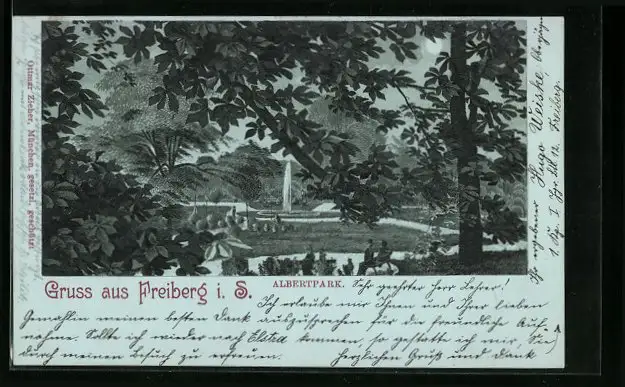 Gruss aus Freiberg i. S.
ALBERTPARK.
Sehr geehrter Herr Lehrer!
Ich erlaube mir Ihnen und Ihrer lieben
Gemahlin meinen besten Dank auszusprechen für die freundliche Auf-
nahme. Sollte ich wieder nach Elstra kommen, so gestatte ich mir, Sie
durch meinen Besuch zu erfreuen. Herzlichen Gruß und Dank
Ihr ergebener Hugo Weiske, Oberjäger
1. Kg. I. Jgr. Btl 12. Freiberg.
Ottmar Zieher, München, gesetzl. geschützt